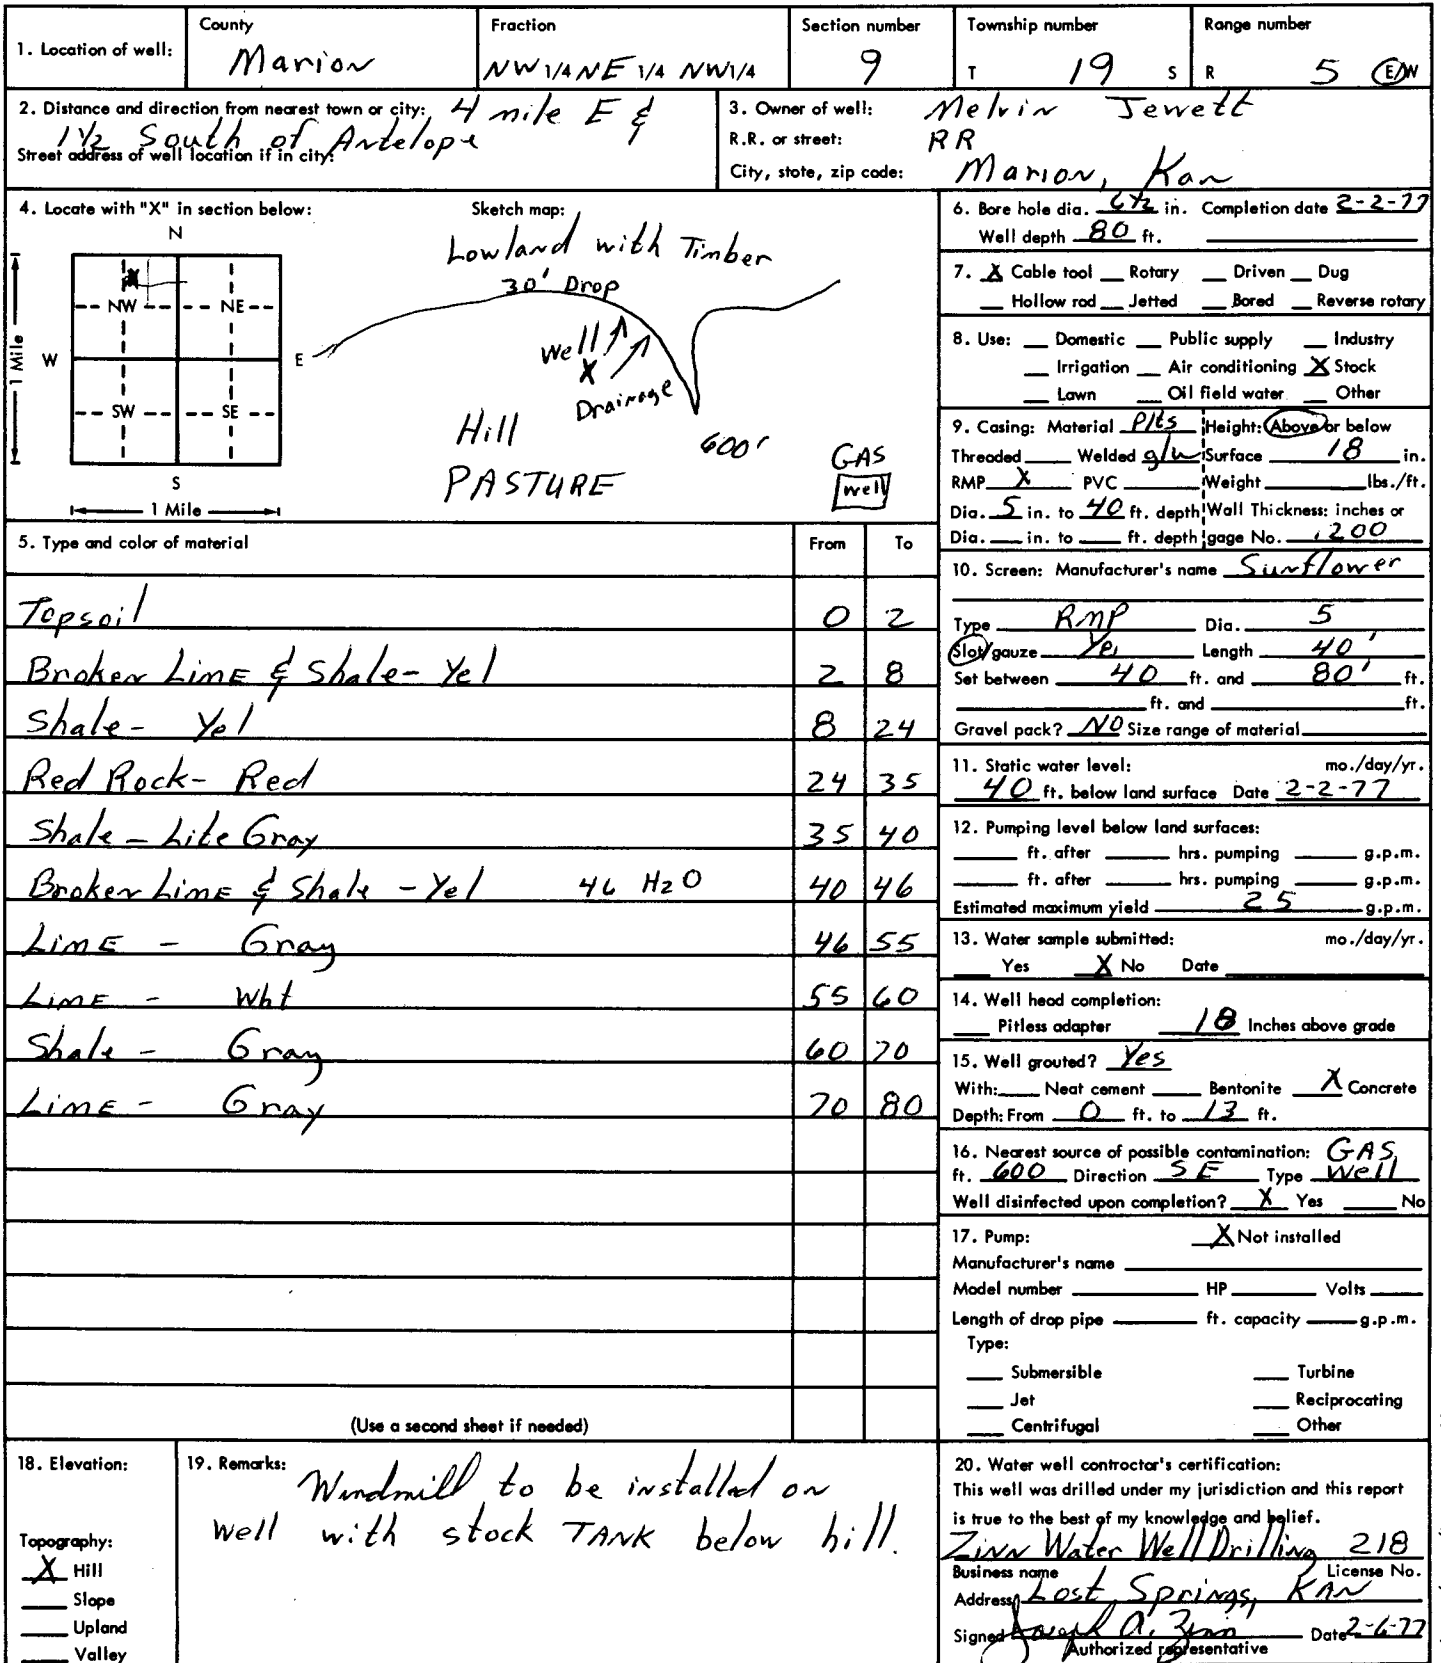 1. Location of well:
County
Marion
Fraction
NW 1/4 NE 1/4 NW 1/4
Section number
9
Township number
T 19 S
Range number
R 5 E/W
2. Distance and direction from nearest town or city: 4 mile E &
1½ South of Antelope
Street address of well location if in city:
3. Owner of well: Melvin Jewett
R.R. or street: RR
City, state, zip code: Marion, Kan
4. Locate with "X" in section below:
N
NW NE
W E
SW SE
S
1 Mile
1 Mile
X
Sketch map:
Lowland with Timber
30' Drop
Well
X
Drainage
Hill
PASTURE
600'
GAS
well
6. Bore hole dia. 6½ in. Completion date 2-2-77
Well depth 80 ft.
7. X Cable tool Rotary Driven Dug
Hollow rod Jetted Bored Reverse rotary
8. Use: Domestic Public supply Industry
Irrigation Air conditioning X Stock
Lawn Oil field water Other
9. Casing: Material Plts Height: Above or below
Threaded Welded glu Surface 18 in.
RMP X PVC Weight lbs./ft.
Dia. 5 in. to 40 ft. depth Wall Thickness: inches or
Dia. in. to ft. depth gage No. .200
10. Screen: Manufacturer's name Sunflower
Type RMP Dia. 5
Slot/gauze Yes Length 40'
Set between 40 ft. and 80' ft.
ft. and ft.
Gravel pack? NO Size range of material
11. Static water level: mo./day/yr.
40 ft. below land surface Date 2-2-77
12. Pumping level below land surfaces:
ft. after hrs. pumping g.p.m.
ft. after hrs. pumping g.p.m.
Estimated maximum yield 25 g.p.m.
13. Water sample submitted: mo./day/yr.
Yes X No Date
14. Well head completion:
Pitless adapter 18 Inches above grade
15. Well grouted? Yes
With: Neat cement Bentonite X Concrete
Depth: From 0 ft. to 13 ft.
16. Nearest source of possible contamination: GAS
ft. 600 Direction SE Type Well
Well disinfected upon completion? X Yes No
17. Pump: X Not installed
Manufacturer's name
Model number HP Volts
Length of drop pipe ft. capacity g.p.m.
Type:
Submersible Turbine
Jet Reciprocating
Centrifugal Other
5. Type and color of material From To
Topsoil 0 2
Broken Lime & Shale- Yel 2 8
Shale- Yel 8 24
Red Rock- Red 24 35
Shale - Lite Gray 35 40
Broken Lime & Shale - Yel 46 H2O 40 46
Lime - Gray 46 55
Lime - Wht 55 60
Shale - Gray 60 70
Lime - Gray 70 80
(Use a second sheet if needed)
18. Elevation:
Topography:
X Hill
Slope
Upland
Valley
19. Remarks: Windmill to be installed on
well with stock TANK below hill.
20. Water well contractor's certification:
This well was drilled under my jurisdiction and this report
is true to the best of my knowledge and belief.
Zinn Water Well Drilling 218
Business name License No.
Address Lost Springs, KAN
Signed Joseph A. Zinn Date 2-6-77
Authorized representative